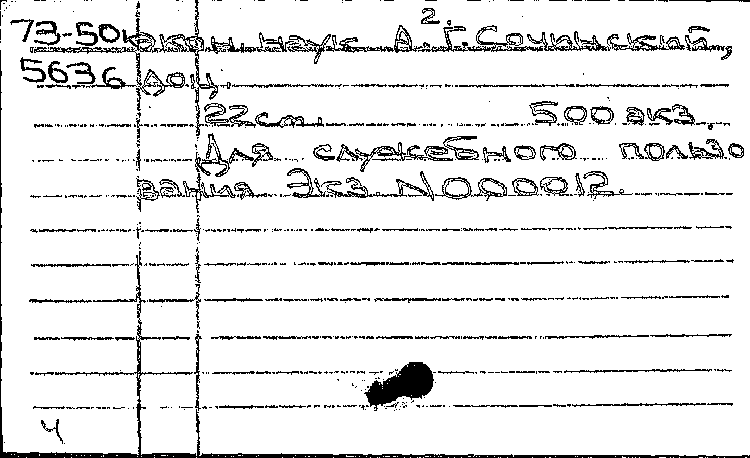 2.
73-50к экон. наук А. Г. Сочинский,
5636 доц.
22 ст. 500 экз.
Для служебного пользо
вания Экз. N000012.
4